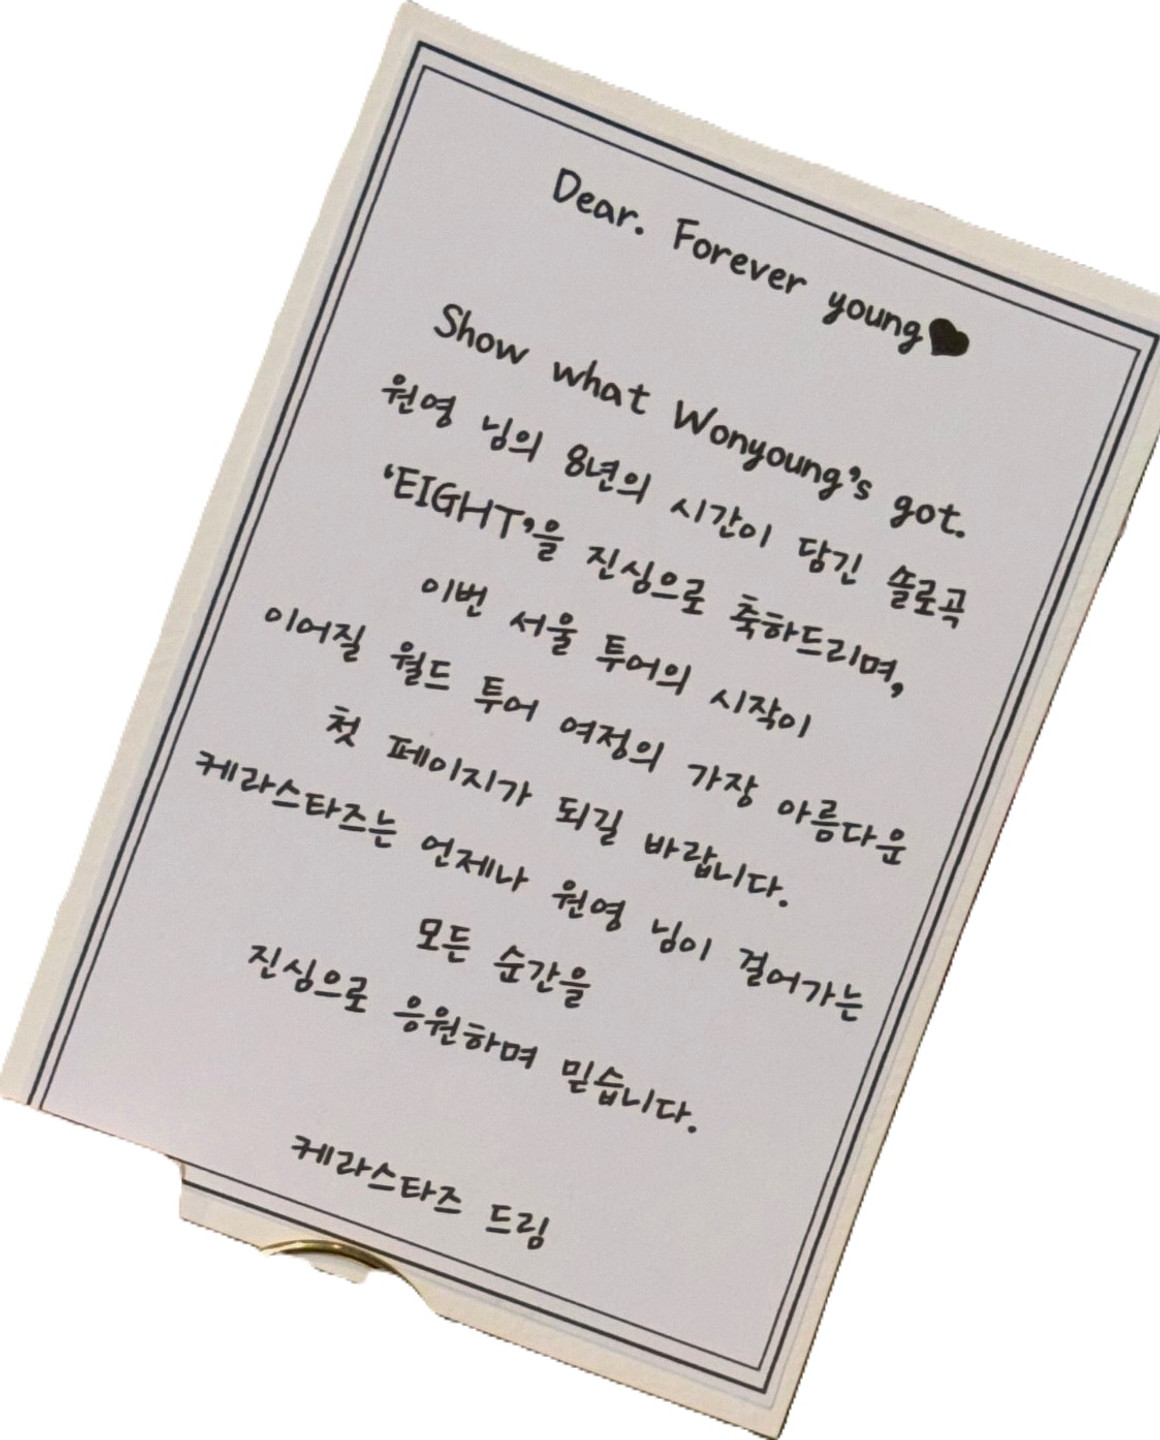 Dear. Forever young♥
Show what Wonyoung's got.
원영 님의 8년의 시간이 담긴 솔로곡
'EIGHT'을 진심으로 축하드리며,
이번 서울 투어의 시작이
이어질 월드 투어 여정의 가장 아름다운
첫 페이지가 되길 바랍니다.
케라스타즈는 언제나 원영 님이 걸어가는
모든 순간을
진심으로 응원하며 믿습니다.
케라스타즈 드림